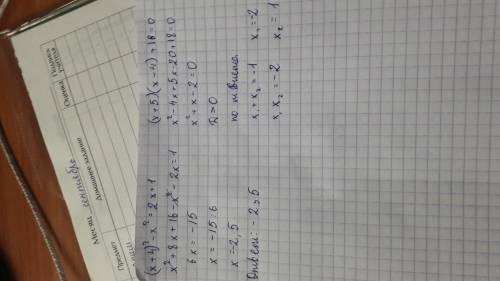 Месяц сентябрь
Предмет
Домашнее задание
Оценка
Подпись учителя
(x+4)² - x² = 2x+1
x² + 8x + 16 - x² - 2x = 1
6x = -15
x = -15 : 6
x = -2,5
Ответ: -2,5
(x+5)(x-4)+18=0
x² - 4x + 5x - 20 + 18 = 0
x² + x - 2 = 0
D > 0
по т Виета
x₁ + x₂ = -1 x₁ = -2
x₁ x₂ = -2 x₂ = 1